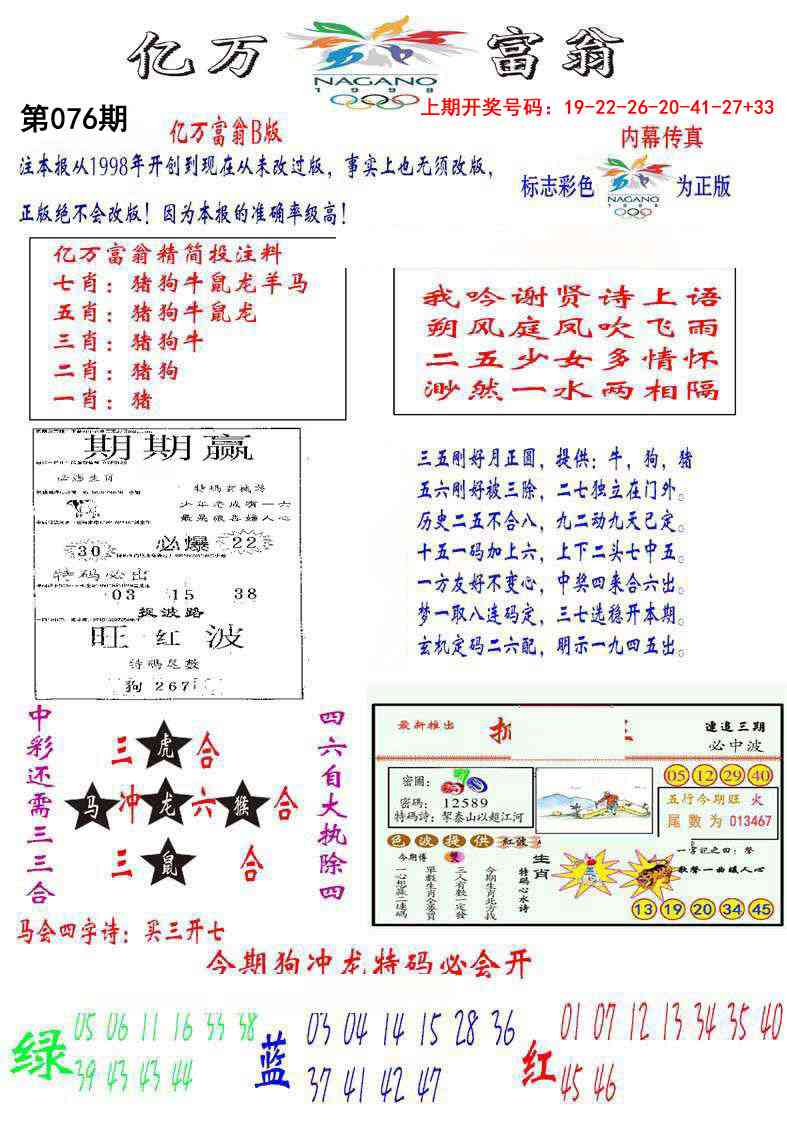 亿万
NAGANO
1998
富翁
第076期
亿万富翁B版
上期开奖号码：19-22-26-20-41-27+33
内幕传真
注本报从1998年开创到现在从未改过版，事实上也无须改版，
正版绝不会改版！因为本报的准确率级高！
标志彩色
NAGANO
1998
为正版
亿万富翁精简投注料
七肖：猪狗牛鼠龙羊马
五肖：猪狗牛鼠龙
三肖：猪狗牛
二肖：猪狗
一肖：猪
我吟谢贤诗上语
朔风庭凤吹飞雨
二五少女多情怀
渺然一水两相隔
期期赢
必选生肖
特码玄机诗
少年老成有一六
30
必爆
22
特码必出
03 15 38
捉波路
旺红波
特码尾数
狗267
三五刚好月正圆，提供：牛，狗，猪
五六刚好被三除，二七独立在门外。
历史二五不合八，九二动九天已定。
十五一码加上六，上下二头七中五。
一方友好不变心，中奖四来合六出。
梦一取八连码定，三七选稳开本期。
玄机定码二六配，明示一九四五出。
中彩还需三三合
三 虎 合
马 冲 龙 六 猴 合
三 鼠 合
四六自大执除四
马会四字诗：买三开七
最新推出
连追三期
必中波
密圈：
密码：12589
特码诗：挈泰山以超江河
05 12 29 40
五行今期旺 火
尾数为 013467
色波提供 红波
今期博
一心想赢二连码
单数生肖全要買
三人有数一定發
今期生肖北方找
特碼心水诗
生肖
一字记之曰：聲
歌聲一曲誰人心
13 19 20 34 45
今期狗冲龙特码必会开
绿
05 06 11 16 33 38
39 43 43 44
蓝
03 04 14 15 28 36
37 41 42 47
红
01 07 12 13 34 35 40
45 46